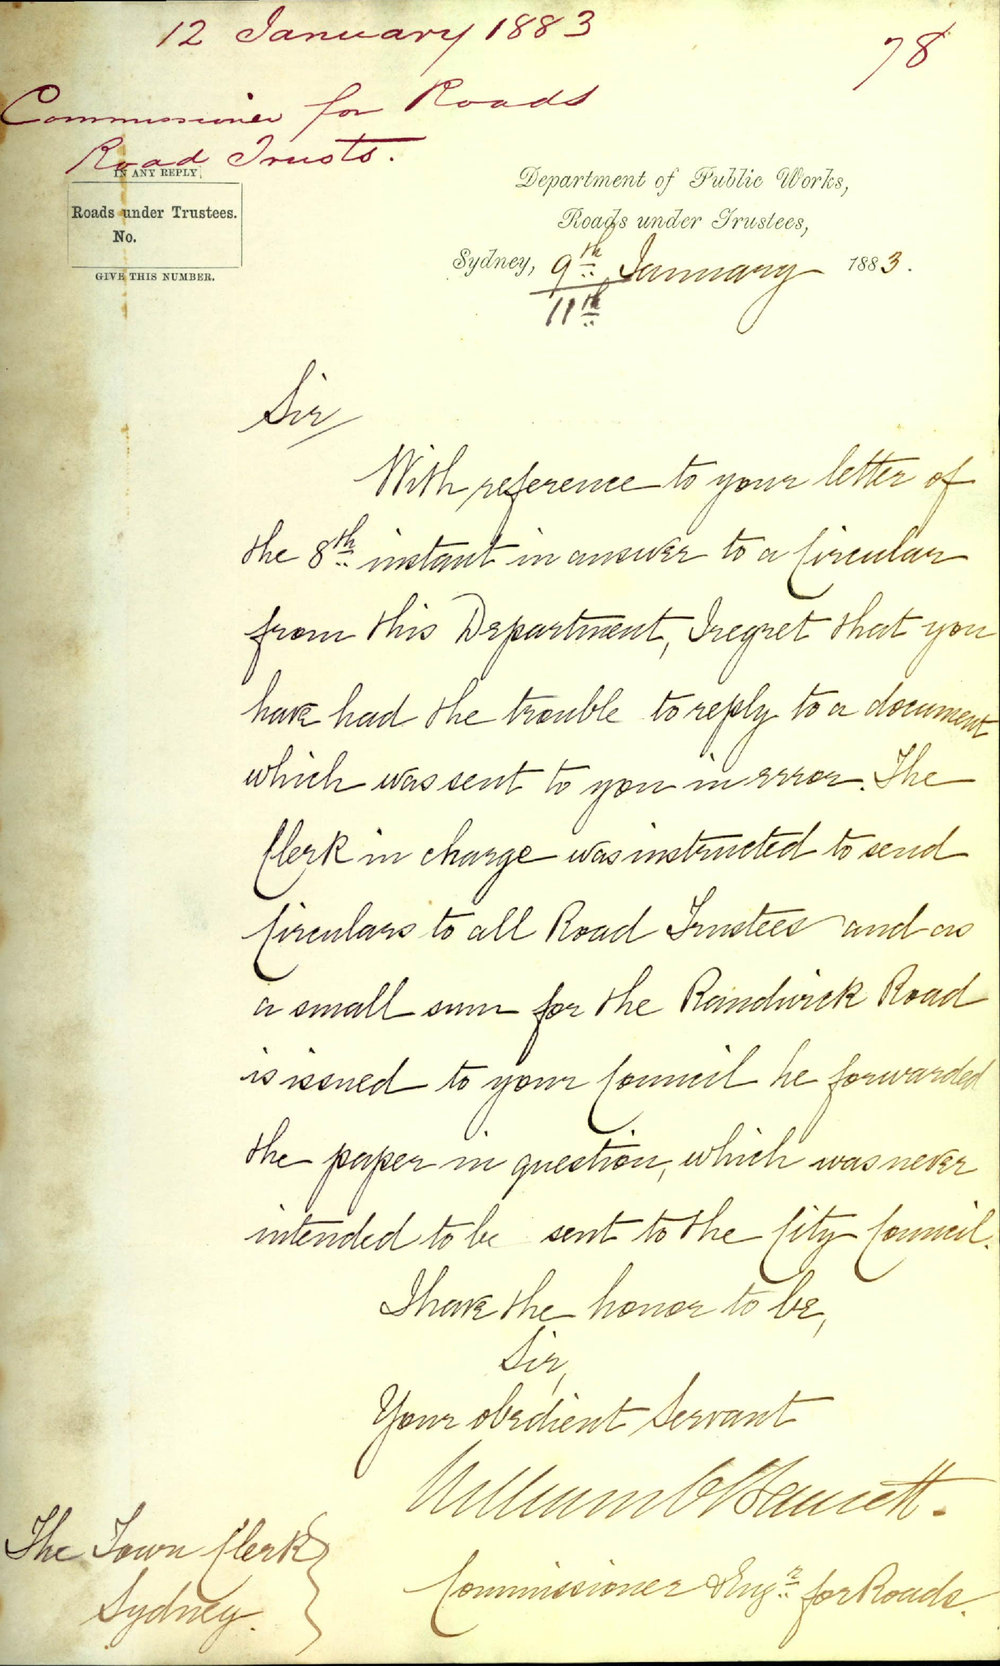 12 January 1883
78
Commissioner for Roads
Road Trusts.
IN ANY REPLY,
Roads under Trustees.
No.
GIVE THIS NUMBER.
Department of Public Works,
Roads under Trustees,
Sydney, 9th January 1883.
11th
Sir
With reference to your letter of
the 8th instant in answer to a Circular
from this Department, I regret that you
have had the trouble to reply to a document
which was sent to you in error. The
Clerk in charge was instructed to send
Circulars to all Road Trustees and as
a small sum for the Randwick Road
is issued to your Council he forwarded
the paper in question, which was never
intended to be sent to the City Council.
I have the honor to be,
Sir,
Your obedient Servant
William C Bennett.
Commissioner & Engr for Roads.
The Town Clerk
Sydney.